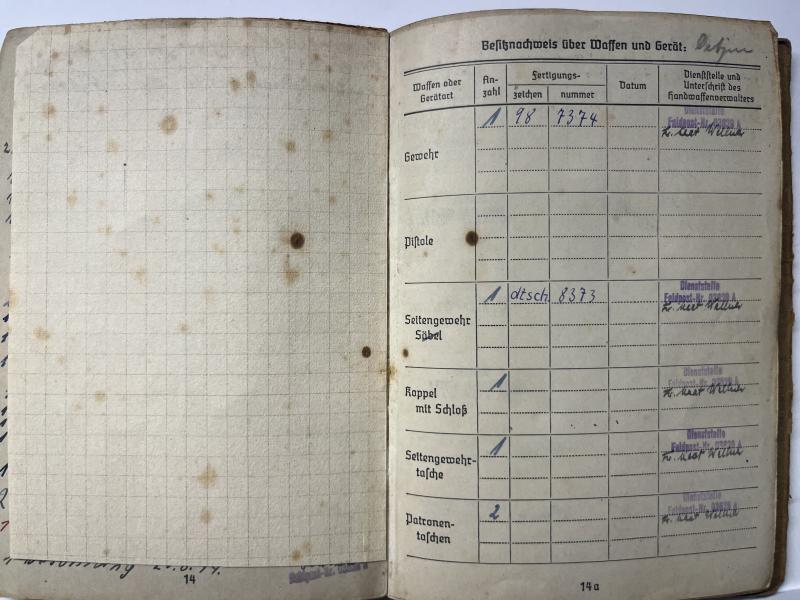 14
Besitznachweis über Waffen und Gerät:
Waffen oder Gerätart
An-zahl
Fertigungs-
zeichen
nummer
Datum
Dienststelle und Unterschrift des Handwaffenverwalters
Gewehr
1 98 7374
Dienststelle
Feldpost-Nr. 03839 A
Pistole
Seitengewehr
Säbel
1 dtsch. 8373
Dienststelle
Feldpost-Nr. 03839 A
Koppel
mit Schloß
1
Dienststelle
Feldpost-Nr. 03839 A
Seitengewehr-
tasche
1
Dienststelle
Feldpost-Nr. 03839 A
Patronen-
taschen
2
Dienststelle
Feldpost-Nr. 03839 A
14a